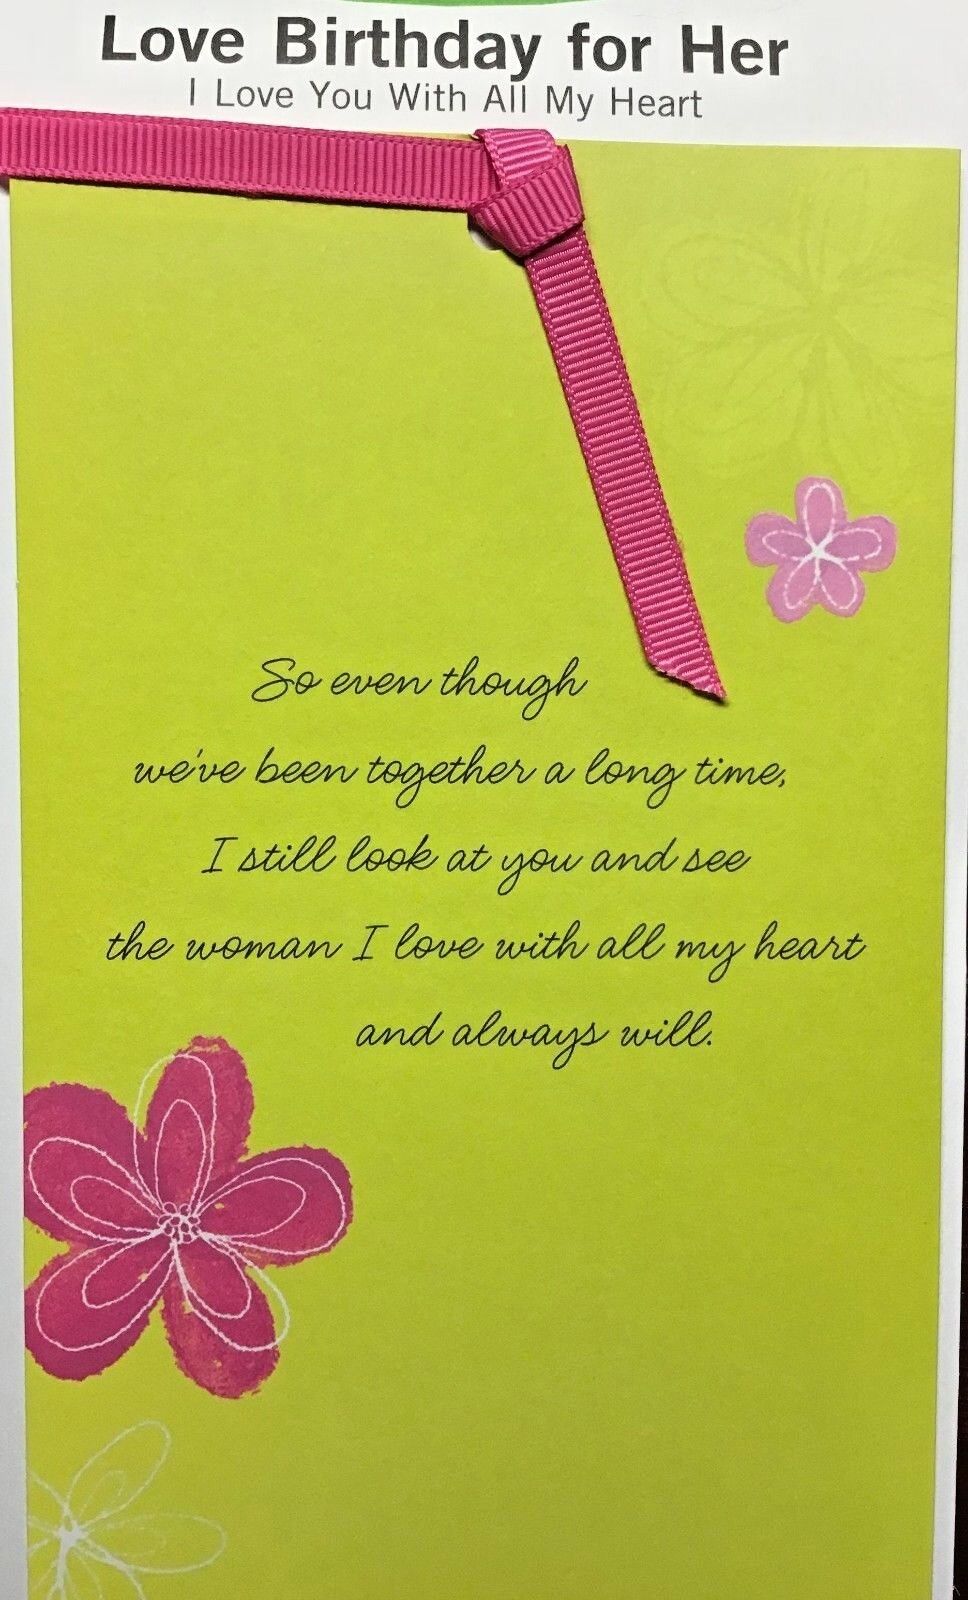 Love Birthday for Her
I Love You With All My Heart
So even though
we've been together a long time,
I still look at you and see
the woman I love with all my heart
and always will.